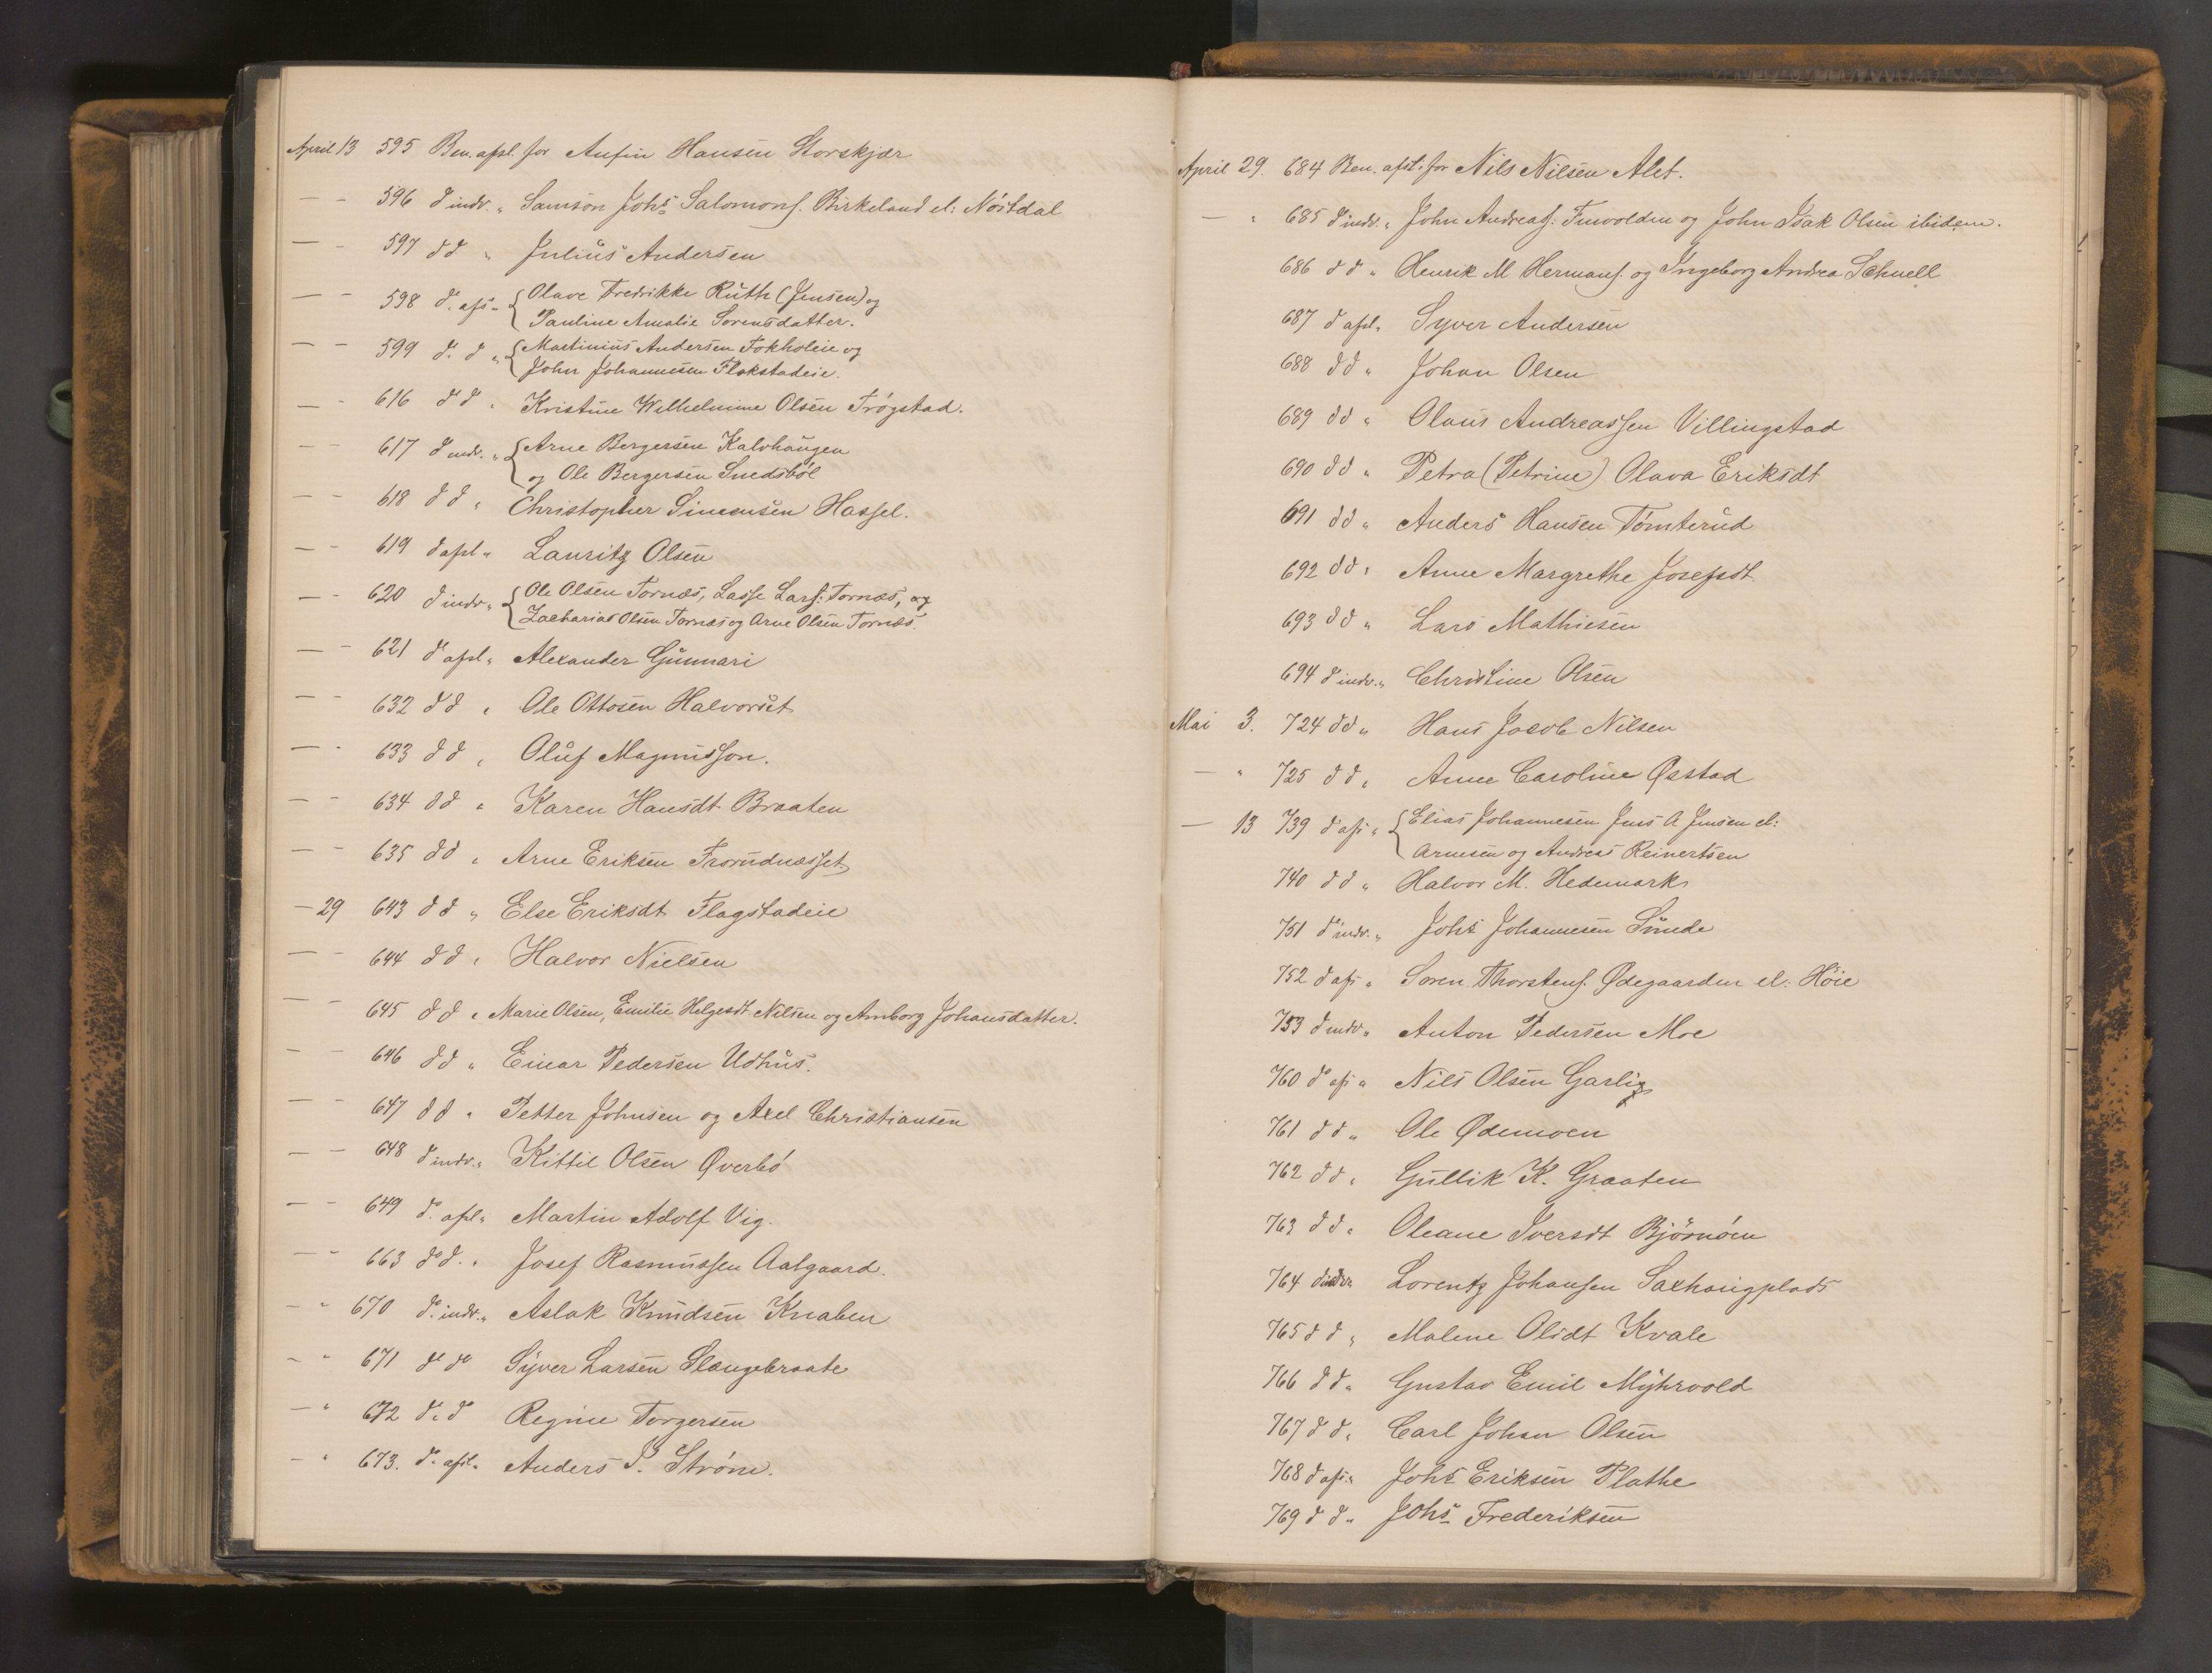 April 13 595 Ben. afsl. for Anfin Hansen Storskjær
— - 596 do indv. " Samson Johs Salomons. Birkeland el: Nöstdal
— - 597 d d " Julius Andersen
— - 598 do afs " { Olave Fredrikke Ruth (Jensen) og
Pauline Amalie Sorensdatter.
— - 599 d. d " { Martinius Andersen Fokholeie og
John Johannesen Flokstadeie.
— - 616 d d " Kristine Wilhelmine Olsen Trøgstad.
— - 617 d indv. " { Arne Bergersen Kalvhaugen
og Ole Bergersen Snedsböl
— - 618 d d " Christopher Simensen Hassel.
— - 619 d afsl " Lauritz Olsen
— - 620 d indv " { Ole Olsen Tornæs, Lasse Lars: Tornæs, og
Zacharias Olsen Tornæs og Arne Olsen Tornæs.
— - 621 do afsl " Alexander Gunnari
— - 632 d d " Ole Ottosen Halvorset
— - 633 d d " Oluf Magnusson.
— - 634 d d " Karen Hansdt Braaten
— - 635 d d " Arne Eriksen Frorudnæsset
— 29 643 d d " Else Eriksdt Flagstadeie
— - 644 d d " Halvor Nielsen
— - 645 d d " Marie Olsen, Emilie Helgesdt Nilsen og Amborg Johansdatter.
— - 646 d d " Einar Pedersen Udhus.
— - 647 d d " Petter Johnsen og Axel Christiansen
— - 648 d indv. " Kittil Olsen Øverbö
— - 649 do. afsl " Martin Adolf Vig.
— - 663 do d. " Josef Rasmussen Aalgaard.
— " 670 do. indv. " Aslak Knudsen Knaben
— " 671 do do Syver Larsen Slængebraate
— " 672 do do Regine Torgersen
— " 673. do. afsl. " Anders P. Strøm.
April 29. 684 Ben. afsl: for Nils Nilsen Alet.
— " 685 do indv. " John Andreass: Furvolden og John Isak Olsen ibidem.
686 d d " Henrik M Hermans. og Ingeborg Andrea Schnell
687 d afsl " Syver Andersen
688 d d " Johan Olsen
689 d d " Olaus Andreassen Villingstad
690 d d " Petra (Petrine) Olava Eriksdt
691 d d " Anders Hansen Tömterud
692 d d " Anne Margrethe Josefsdt
693 d d " Lars Mathiesen
694 d indv. " Christine Olsen
Mai 3. 724 d d " Hans Jacob Nilsen
— " 725 d d " Anne Caroline Østad
— 13 739 d afs " { Elias Johannesen Jens A Jensen el:
Arnesen og Andreas Reinertsen
740 d d " Halvor M. Hedemark
751 do indv. " Johs Johannesen Sunde
752 d afs " Soren Thorstens. Ødegaarden el: Höie
753 d indv " Anton Pedersen Moe
760 do afs " Nils Olsen Garlig
761 d d " Ole Ødemoen
762 d d " Gullik K. Graaten
763 d d " Oleane Iversdt Björnöen
764 d indv " Lorentz Johansen Saxhaugplads
765 d d " Malene Olsdt Kvale
766 d d " Gustav Emil Myhrvold
767 d d " Carl Johan Olsen
768 d afs " Johs Eriksen Plathe
769 d d " Johs Frederiksen